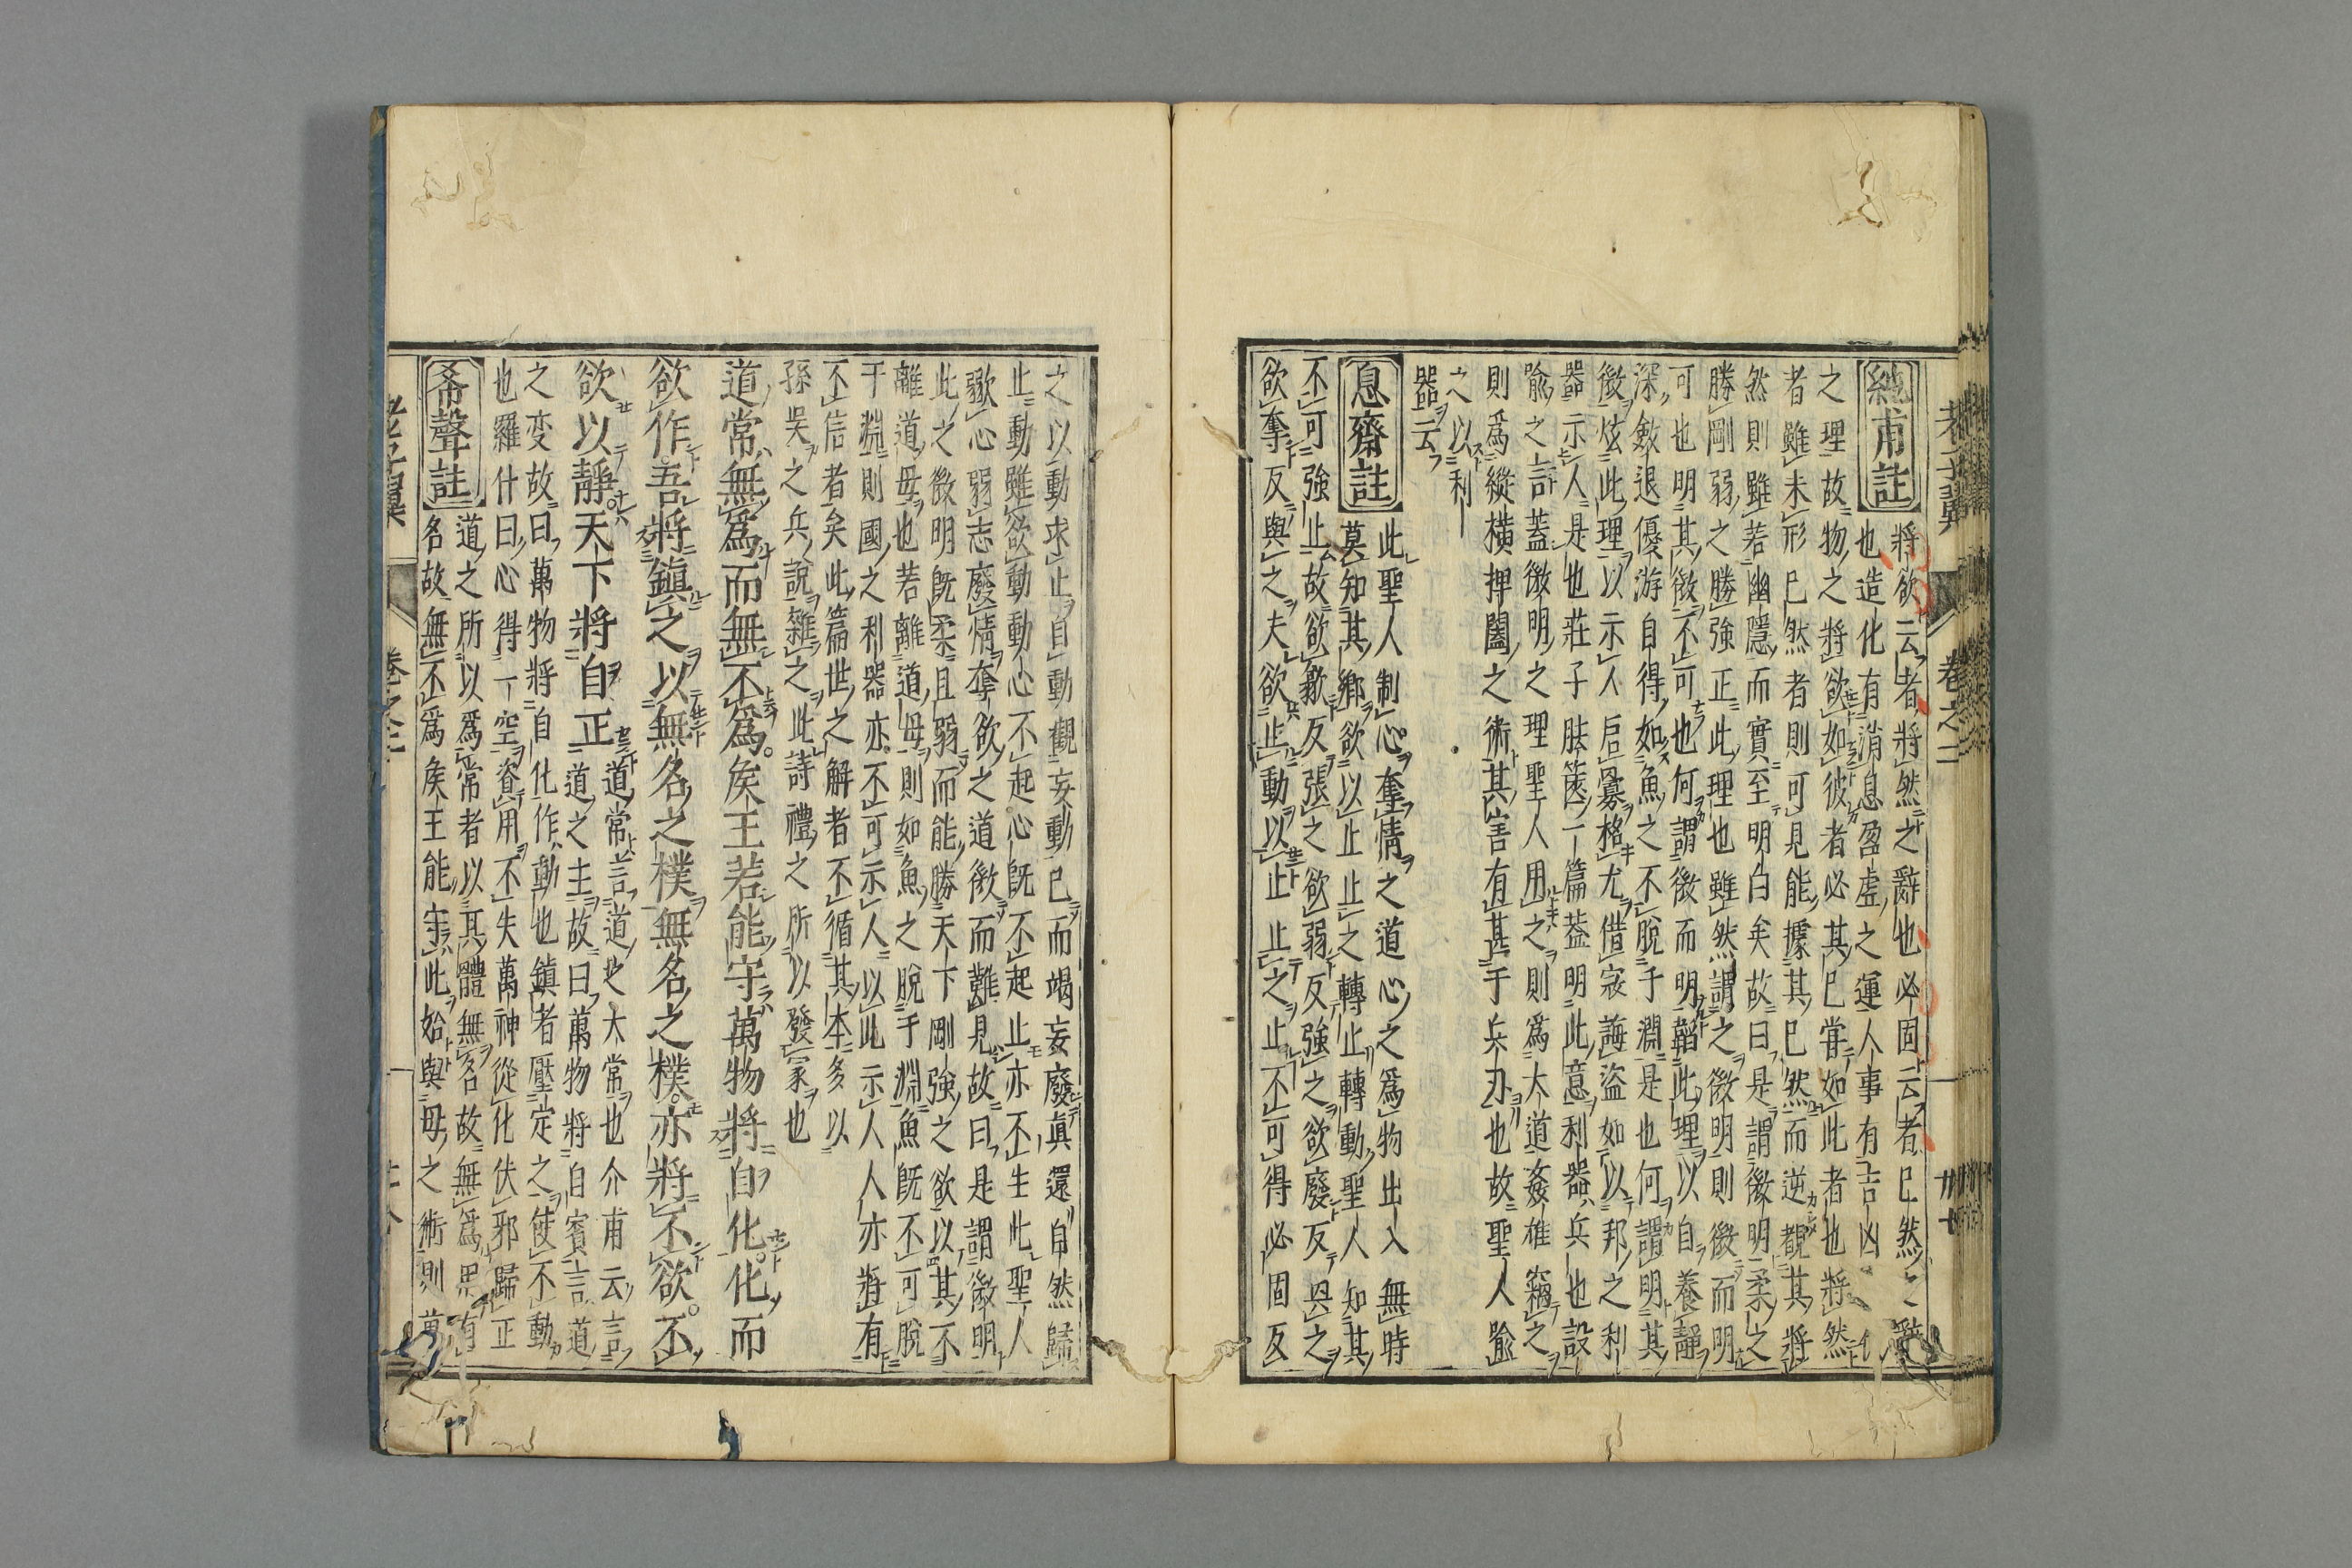 老子翼 卷之二
純甫註
將欲云者將然之辭也必固云者已然之辭
也造化有消息盈虛之運人事有吉凶
之理故物之將欲如彼者必其已嘗如此者也將然
者雖未形已然者則可見能據其已然而逆覩其將
然則雖若幽隱而實至明白矣故曰是謂微明柔之
勝剛弱之勝強正此理也雖然謂之微明則微而明
可也明其微不可也何謂微而明韜此理以自養靜
深斂退優游自得如魚之不脫于淵是也何謂明其
微炫此理以示人啟釁格尤借寇誨盜如以邦之利
器示人是也莊子胠篋一篇蓋明此意利器兵也設
喩之言蓋微明之理聖人用之則為大道姦雄竊之
則爲縱橫捭闔之術其害有甚于兵刃也故聖人喩
之以利
器云
息齋註
此聖人制心奪情之道心之爲物出入無時
莫知其鄉欲以止止之轉止轉動聖人知其
不可強止故欲歙反張之欲弱反強之欲廢反興之
欲奪反與之夫欲止動以止止之止不可得必固反
之以動求止自動觀妄動已而竭妄廢眞還自然歸
止動雖欲動動心不起心旣不起止亦不生此聖人
歙心弱志廢情奪欲之道微而難見故曰是謂微明
此之微明旣柔且弱而能勝天下剛強之欲以其不
離道毋也若離道毋則如魚之脫于淵魚旣不可脫
于淵則國之利器亦不可示人以此示人人亦將有
不信者矣此篇世之解者不循其本多以
孫吳之兵說雜之此詩禮之所以發冢也
道常無爲而無不爲矦王若能守萬物將自化化而
欲作吾將鎮之以無名之樸無名之樸亦將不欲不
欲以靜天下將自正
道常言道也大常也介甫云言
道之主故曰萬物將自賓言道
之变故曰萬物將自化作動也鎮者壓定之使不動
也羅什曰心得一空資用不失萬神從化伏邪歸正
希聲註
道之所以爲常者以其體無名故無爲思有
名故無不爲矦王能守此始與毋之術則萬
老子翼 卷之二